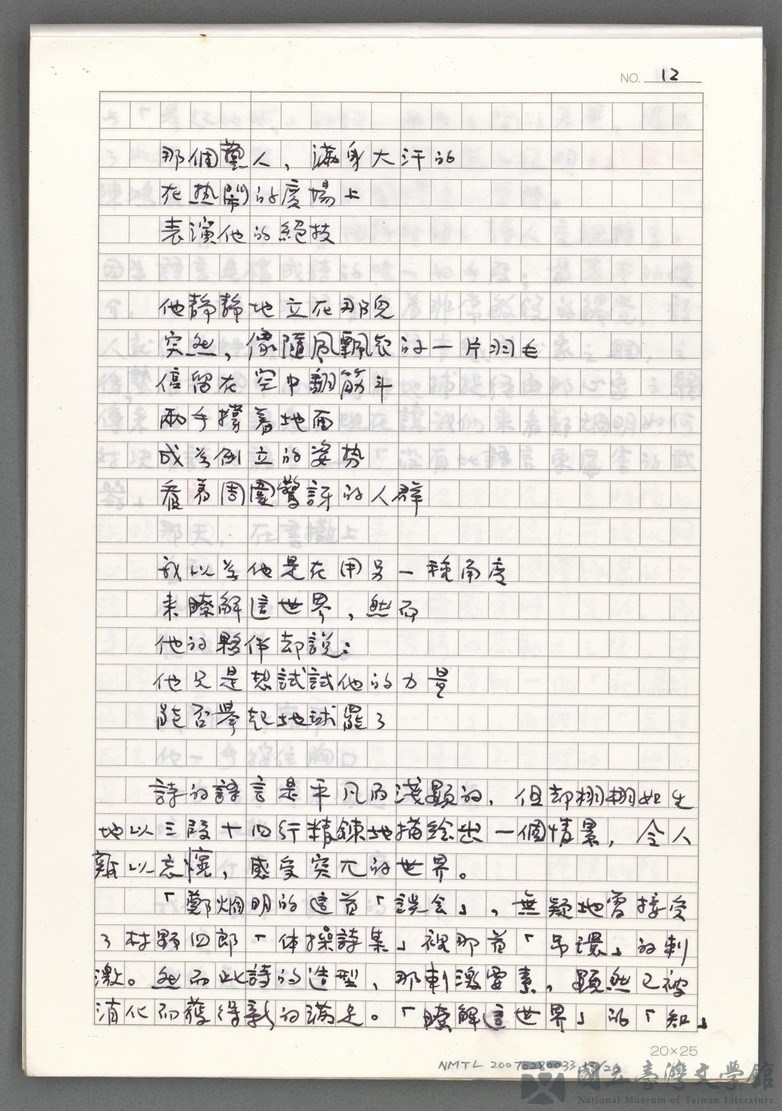 NO. 12
那個藝人，滿身大汗的
在热鬧的廣場上
表演他的絕技
他靜靜地立在那兒
突然，像隨風飄飛的一片羽毛
停留在空中翻筋斗
兩手撐着地面
成為倒立的姿势
看着周圍驚訝的人群
我以為他是在用另一種角度
来瞭解這世界，然而
他的夥伴却說：
他只是想試試他的力量
能否舉起地球罷了
詩的語言是平凡而淺顯的，但却栩栩如生
地以三段十四行精鍊地描绘出一個情景，令人
難以忘懷，感受突兀的世界。
「鄭烱明的這首「誤会」，無疑地曾接受
了村野四郎「体操詩集」裡那首「吊環」的刺
激。然而此詩的造型，那刺激要素，顯然已被
消化而獲得新的滿足。「瞭解這世界」的「知」
20×25
NMTL 20070280033
國立臺灣文學館
National Museum of Taiwan Literature